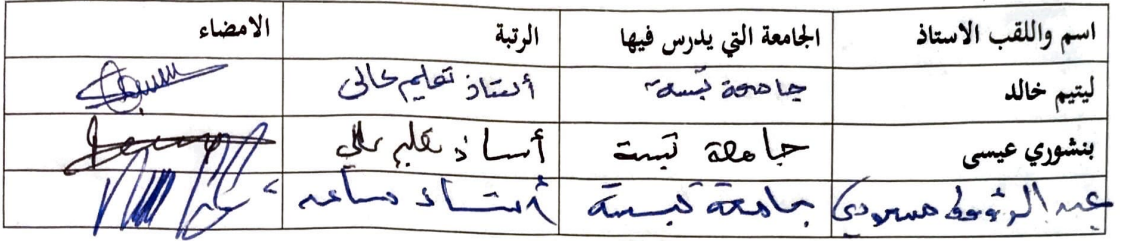 اسم واللقب الاستاذ الجامعة التي يدرس فيها الرتبة الامضاء
ليتيم خالد جامعة تبسة أستاذ تعليم عالي
بنشوري عيسى جامعة تبسة أستاذ تعليم عالي
عبد الرؤوف مسعودي جامعة تبسة أستاذ مساعد